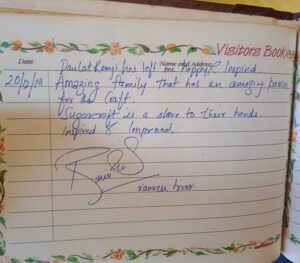 Visitors Book
Date Name and Address
Daulat Ramji has left me happy & Inspired
20/2/19 Amazing family that has an amazing passion
for the Craft.
Sugarcraft is a slave to their hands.
Inspired & Impressed.